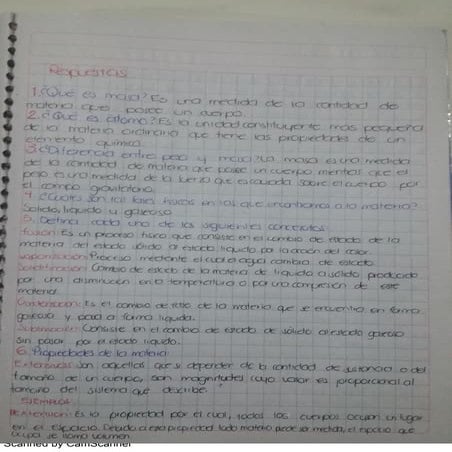 Respuestas
1. ¿Qué es masa? Es una medida de la cantidad de
materia que posee un cuerpo.
2. ¿Qué es átomo? Es la unidad constituyente más pequeña
de la materia ordinaria que tiene las propiedades de un
elemento químico.
3. ¿Diferencia entre peso y masa? La masa es una medida
de la cantidad de materia que posee un cuerpo mientras que el
peso es una medida de la fuerza que es causada sobre el cuerpo por
el campo gravitatorio.
4. ¿Cuáles son las fases físicas en las que encontramos a la materia?
Solido, líquido y gaseoso.
5. Defina cada uno de los siguientes conceptos:
Fusión: Es un proceso físico que consiste en el cambio de estado de la
materia del estado sólido al estado líquido por la acción del calor.
Vaporización: Proceso mediante el cual el agua cambia de estado.
Solidificación: Cambio de estado de la materia de líquido a sólido producido
por una disminución en la temperatura o por una compresión de este
material.
Condensación: Es el cambio de estado de la materia que se encuentra en forma
gaseosa y pasa a forma líquida.
Sublimación: Consiste en el cambio de estado de sólido al estado gaseoso
sin pasar por el estado líquido.
6. Propiedades de la materia:
Extensivas: Son aquellas que si dependen de la cantidad de sustancia o del
tamaño de un cuerpo, son magnitudes cuyo valor es proporcional al
tamaño del sistema que describe.
EJEMPLOS:
Extensión: Es la propiedad por el cual, todos los cuerpos ocupan un lugar
en el espacio. Debido a esa propiedad toda materia puede ser medida, el espacio que
ocupa se llama volumen.
Scanned by CamScanner